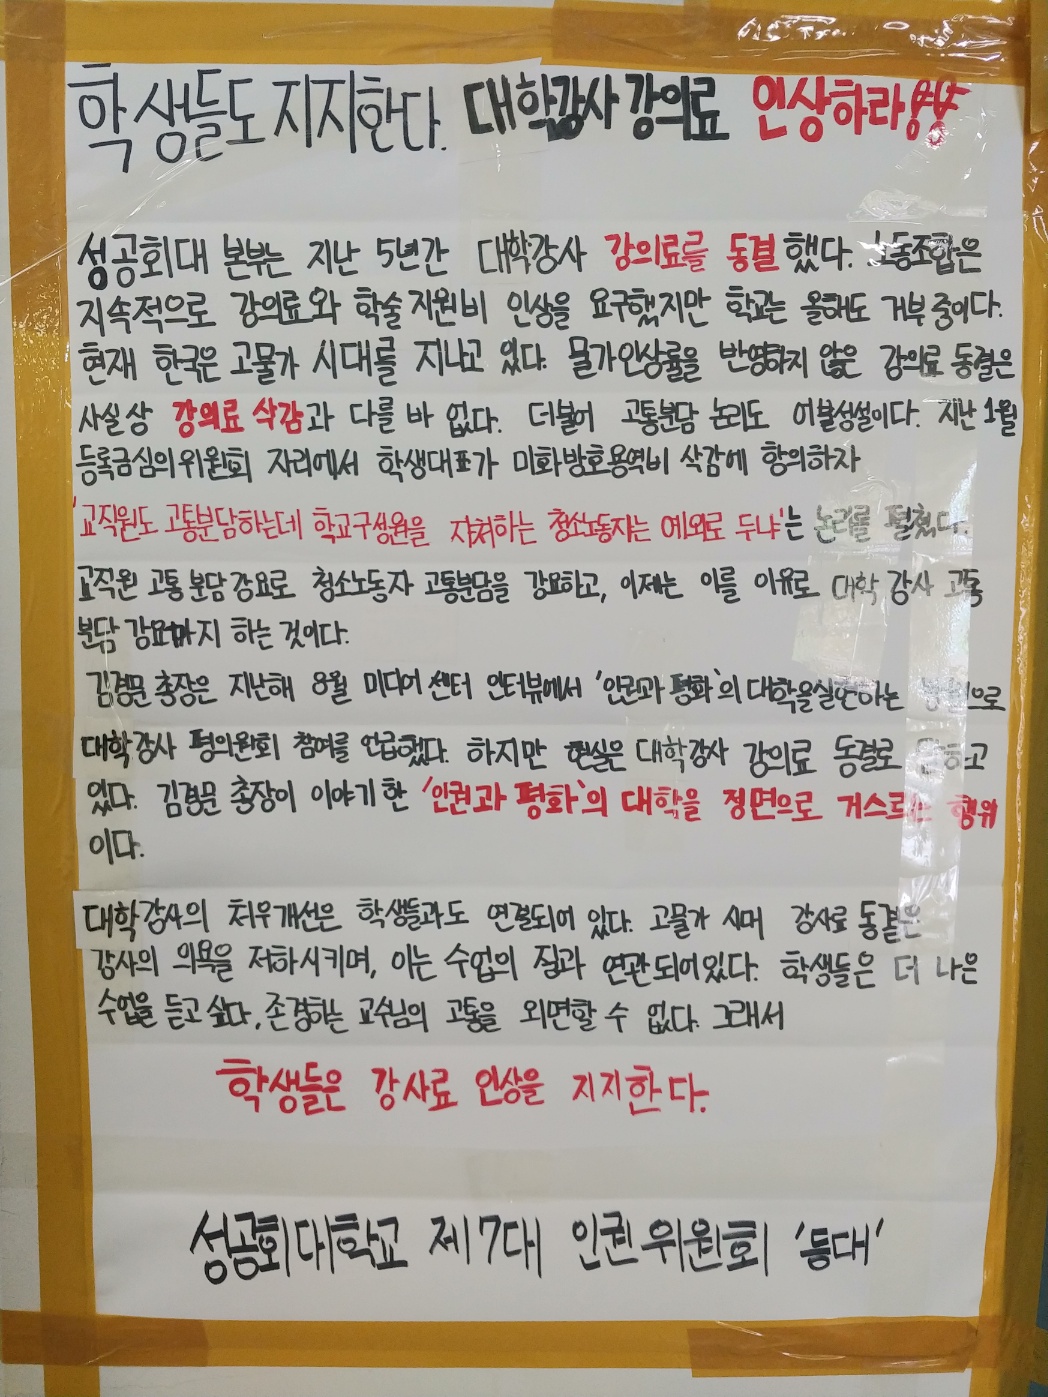 학생들도 지지한다. 대학강사 강의료 인상하라!!
성공회대 본부는 지난 5년간 대학강사 강의료를 동결했다. 노동조합은
지속적으로 강의료와 학술지원비 인상을 요구했지만 학교는 올해도 거부 중이다.
현재 한국은 고물가 시대를 지나고 있다. 물가인상률을 반영하지 않은 강의료 동결은
사실상 강의료 삭감과 다를 바 없다. 더불어 고통분담 논리도 어불성설이다. 지난 1월
등록금심의위원회 자리에서 학생대표가 미화방호용역비 삭감에 항의하자
'교직원도 고통분담하는데 학교구성원을 자처하는 청소노동자는 예외로 두냐'는 논리를 펼쳤다.
교직원 고통분담 강요로 청소노동자 고통분담을 강요하고, 이제는 이를 이유로 대학 강사 고통
분담 강요까지 하는 것이다.
김경문 총장은 지난해 8월 미디어 센터 인터뷰에서 '인권과 평화'의 대학을실현하는 방안으로
대학강사 평의원회 참여를 언급했다. 하지만 현실은 대학강사 강의료 동결로 답하고
있다. 김경문 총장이 이야기 한 '인권과 평화'의 대학을 정면으로 거스르는 행위
이다.
대학강사의 처우개선은 학생들과도 연결되어 있다. 고물가 시대 강사료 동결은
강사의 의욕을 저하시키며, 이는 수업의 질과 연관되어있다. 학생들은 더 나은
수업을 듣고 싶다, 존경하는 교수님의 고통을 외면할 수 없다. 그래서
학생들은 강사료 인상을 지지한다.
성공회대학교 제7대 인권위원회 '등대'